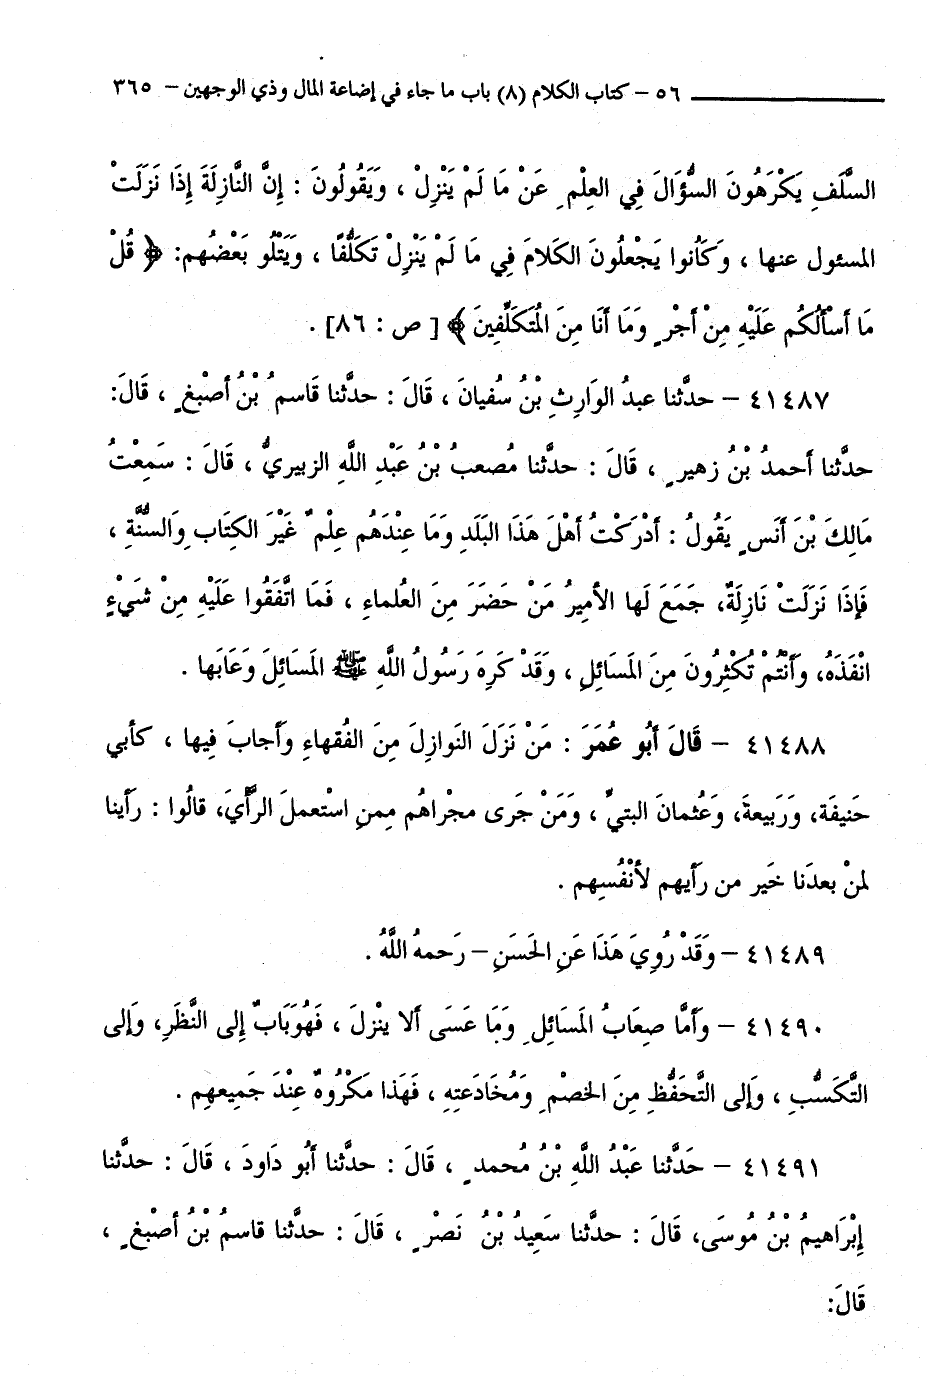 ٥٦ - كتاب الكلام (٨) باب ما جاء في إضاعة المال وذي الوجهين - ٣٦٥
السَّلَفِ يَكْرَهُونَ السُّؤَالَ فِي العِلْمِ عَنْ مَا لَمْ يَنْزِلْ ، وَيَقُولُونَ : إِنَّ النَّازِلَةَ إِذَا نَزَلَتْ
المسئول عنها ، وَكَانُوا يَجْعَلُونَ الكَلامَ فِي مَا لَمْ يَنْزِلْ تَكَلُّفًا ، وَيَتْلُو بَعْضُهم: ﴿ قُلْ
مَا أَسْأَلُكُم عَلَيْهِ مِنْ أَجْرٍ وَمَا أَنَا مِنَ الْمُتَكَلِّفِينَ ﴾ [ ص : ٨٦] .
٤١٤٨٧ - حدَّثنا عبدُ الوَارِثِ بْنُ سُفيانَ ، قَالَ : حدَّثنا قَاسمُ بْنُ أصْبغٍ ، قَالَ:
حدَّثنا أحمدُ بْنُ زهيرٍ ، قَالَ : حدَّثنا مُصعبُ بْنُ عَبْدِ اللَّهِ الزبيريُّ ، قَالَ : سَمِعْتُ
مَالِكَ بْنَ أَنَسٍ يَقُولُ : أَدْرَكْتُ أَهْلَ هَذَا البَلَدِ وَمَا عِنْدَهُم عِلْمٌ غَيْرَ الكِتَابِ وَالسُّنَّةِ ،
فَإِذَا نَزَلَتْ نَازِلَةٌ، جَمَعَ لَها الأمِيرُ مَنْ حَضَرَ مِنَ العُلماءِ ، فَمَا اتَّفَقُوا عَلَيْهِ مِنْ شَيْءٍ
انْفَذَهُ، وَأَنْتُمْ تُكْثِرُونَ مِنَ المَسَائِلِ ، وَقَدْ كَرِهَ رَسُولُ اللَّهِ ﷺ المَسَائِلَ وَعَابَها .
٤١٤٨٨ - قَالَ أَبُو عُمَرَ : مَنْ نَزَلَ النَوازِلَ مِنَ الفُقهاءِ وَأَجابَ فِيها ، كأبي
حَنيفَة، وَرَبيعةَ، وَعُثمانَ البتيِّ ، وَمَنْ جَرى مجْراهُم مِمنِ اسْتعملَ الرَّأْيَ، قالُوا : رَأينا
لمنْ بعدَنا خَير من رَأيهم لأنْفُسِهم .
٤١٤٨٩ - وَقَدْ رُوِيَ هَذَا عَنِ الحَسَنِ - رَحمهُ اللَّهُ .
٤١٤٩٠ - وَأَمَّا صِعَابُ المَسَائِلِ وَمَا عَسَى أَلا يَنْزِلَ ، فَهُوَبَابٌ إِلى النَّظَرِ، وَإِلى
التَّكَسُّبِ ، وَإِلى التَّحَفُّظِ مِنَ الخصْمِ وَمُخَادَعتِهِ ، فَهَذا مَكْرُوهٌ عِنْدَ جَمِيعِهِم .
٤١٤٩١ - حَدَّثنا عَبْدُ اللَّهِ بْنُ مُحمدٍ ، قَالَ : حدَّثنا أَبُو دَاودَ ، قَالَ : حدَّثنا
إِبْرَاهيمُ بْنُ مُوسَى، قَالَ : حدَّثنا سَعِيدُ بْنُ نَصْرٍ ، قَالَ : حدَّثنا قاسمُ بْنُ أصْبغٍ ،
قَالَ: